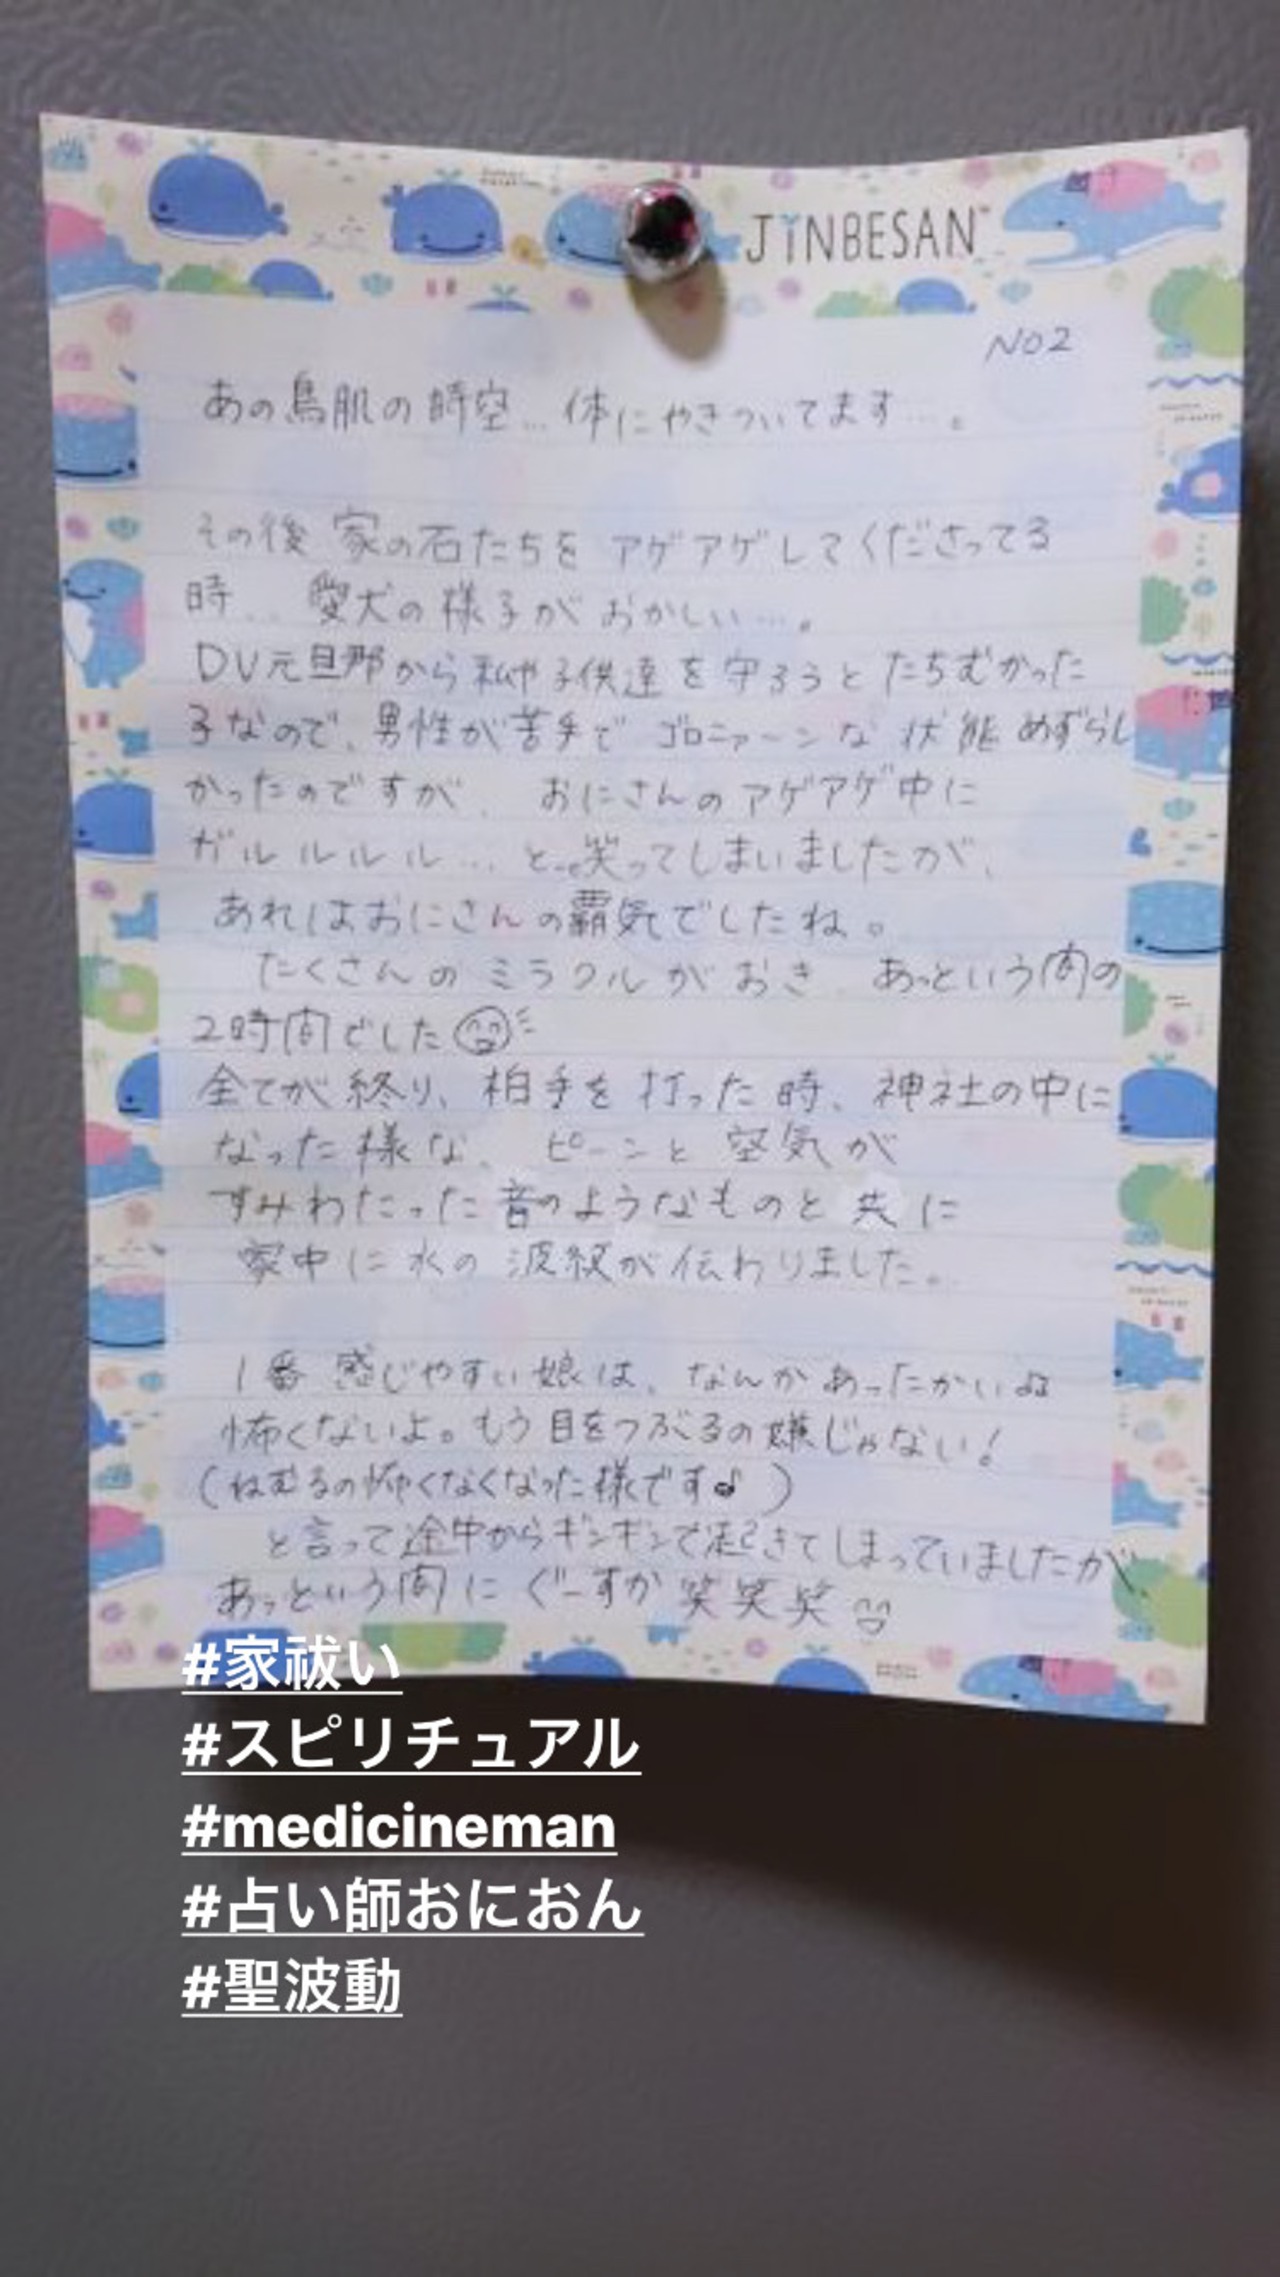 JINBESAN
NO2
あの鳥肌の時空…体にやきついてます…。
その後 家の石たちを アゲアゲしてくださってる
時… 愛犬の様子が おかしい…。
DV元旦那から私や子供達を守ろうと たちむかった
子なので、男性が苦手で ゴロニァーンな 状態 めずらし
かったのですが、 おにさんのアゲアゲ中に
ガルルルル… と…笑ってしまいましたが、
あれはおにさんの覇気でしたね。
たくさんの ミラクルが おき、あっという間の
2時間でした
全てが終り、柏手を 打った 時、神社の中に
なった様な、 ピーンと 空気が
すみわたった音のようなものと 共に
家中に水の 波紋が伝わりました。
1番 感じやすい娘は、なんか あったかいよ
怖くないよ。もう目をつぶるの嫌じゃない!
(ねむるの怖くなくなった様です♪)
と言って途中からギンギンで起きてしまっていましたが、
あっという間に ぐーすか 笑笑笑
#家祓い
#スピリチュアル
#medicineman
#占い師おにおん
#聖波動